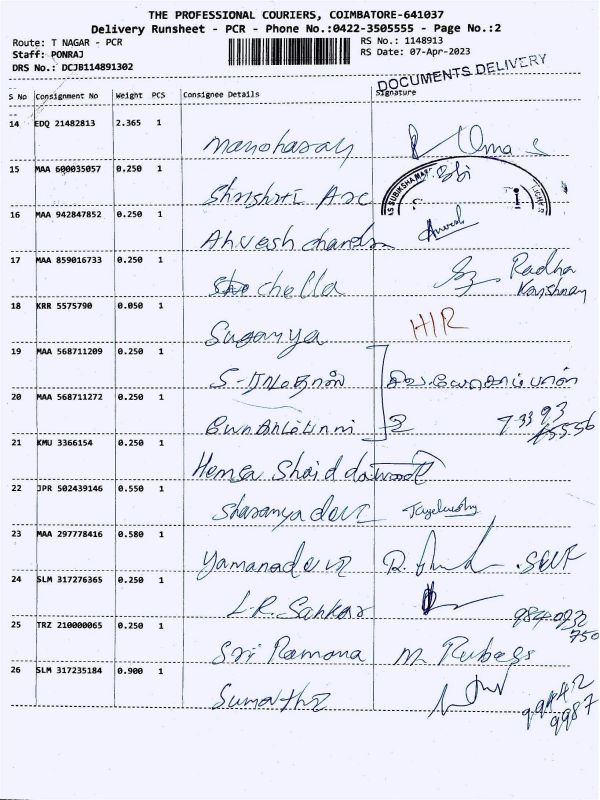 THE PROFESSIONAL COURIERS, COIMBATORE-641037
Delivery Runsheet - PCR - Phone No.:0422-3505555 - Page No.:2
Route: T NAGAR - PCR
RS No.: 1148913
Staff: PONRAJ
RS Date: 07-Apr-2023
DRS No.: DCJB114891302
DOCUMENTS DELIVERY
S No Consignment No Weight PCS Consignee Details Signature
14 EDQ 21482813 2.365 1
Manoharan Uma
15 MAA 600035057 0.250 1
Shrishti Arc
16 MAA 942847852 0.250 1
17 MAA 859016733 0.250 1
chella Radha
18 KRR 5575790 0.050 1
Suganya
19 MAA 568711209 0.250 1
20 MAA 568711272 0.250 1
73393
45556
21 KMU 3366154 0.250 1
22 JPR 502439146 0.550 1
Sharanya devi
23 MAA 297778416 0.580 1
Yamanadevi
24 SLM 317276365 0.250 1
L.R. Sankar
25 TRZ 210000065 0.250 1
Sri Ramana M.
26 SLM 317235184 0.900 1
Sumathi
99442
9987